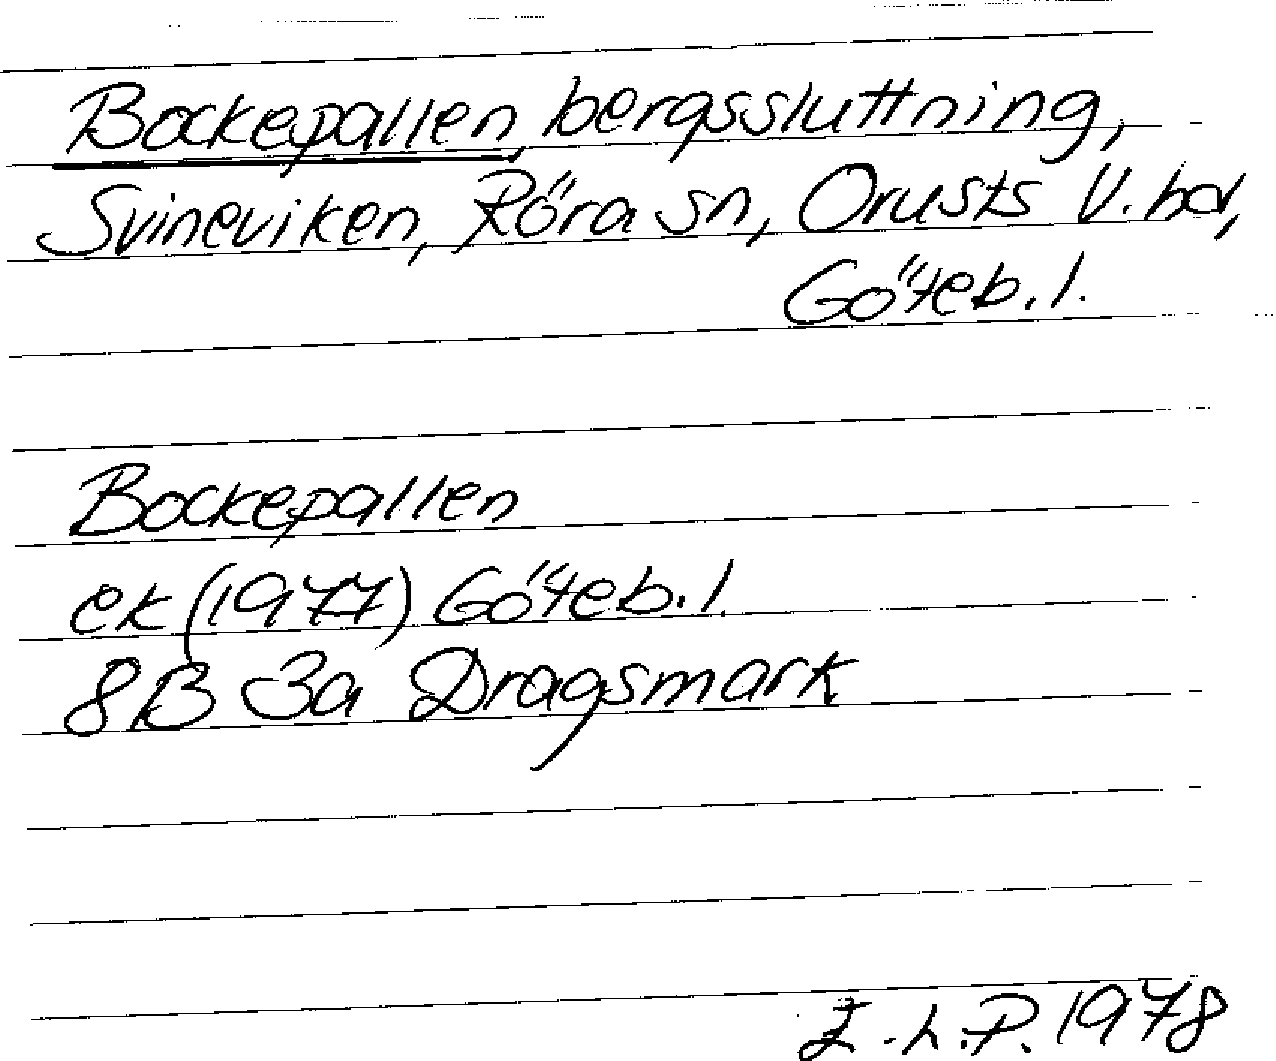 Bockepallen, bergssluttning,
Svineviken, Röra sn, Orusts V. hd,
Göteb. l.
Bockepallen
ek (1977) Göteb. l.
8B 3a Dragsmark
E.L.P. 1978